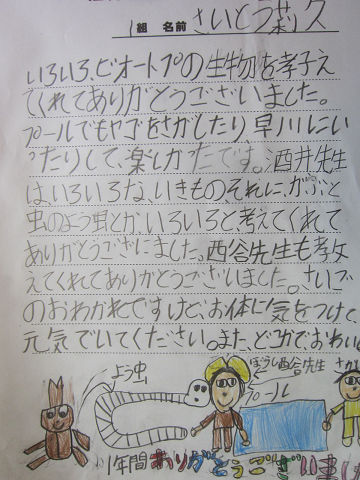 1組 名前 さいとう菊久
いろいろ、ビオートプの生物を孝子え
てくれてありがとうございました。
プールでもヤゴをさがしたり早川にい
ったりして、楽しかたです。酒井先生
は、いろいろな、いきもの、それに、かぶと
虫のよう虫とか、いろいろと、考えてくれて
ありがとうござにました。西谷先生も孝攵
えてくれてありがとうございました。さいご
のおわかれですけど、お体に気をつけて
元気でいてください。また、どこかで、おわい
よう虫
ぼうし
西谷先生
プール
さか
1年間ありがとうございまし